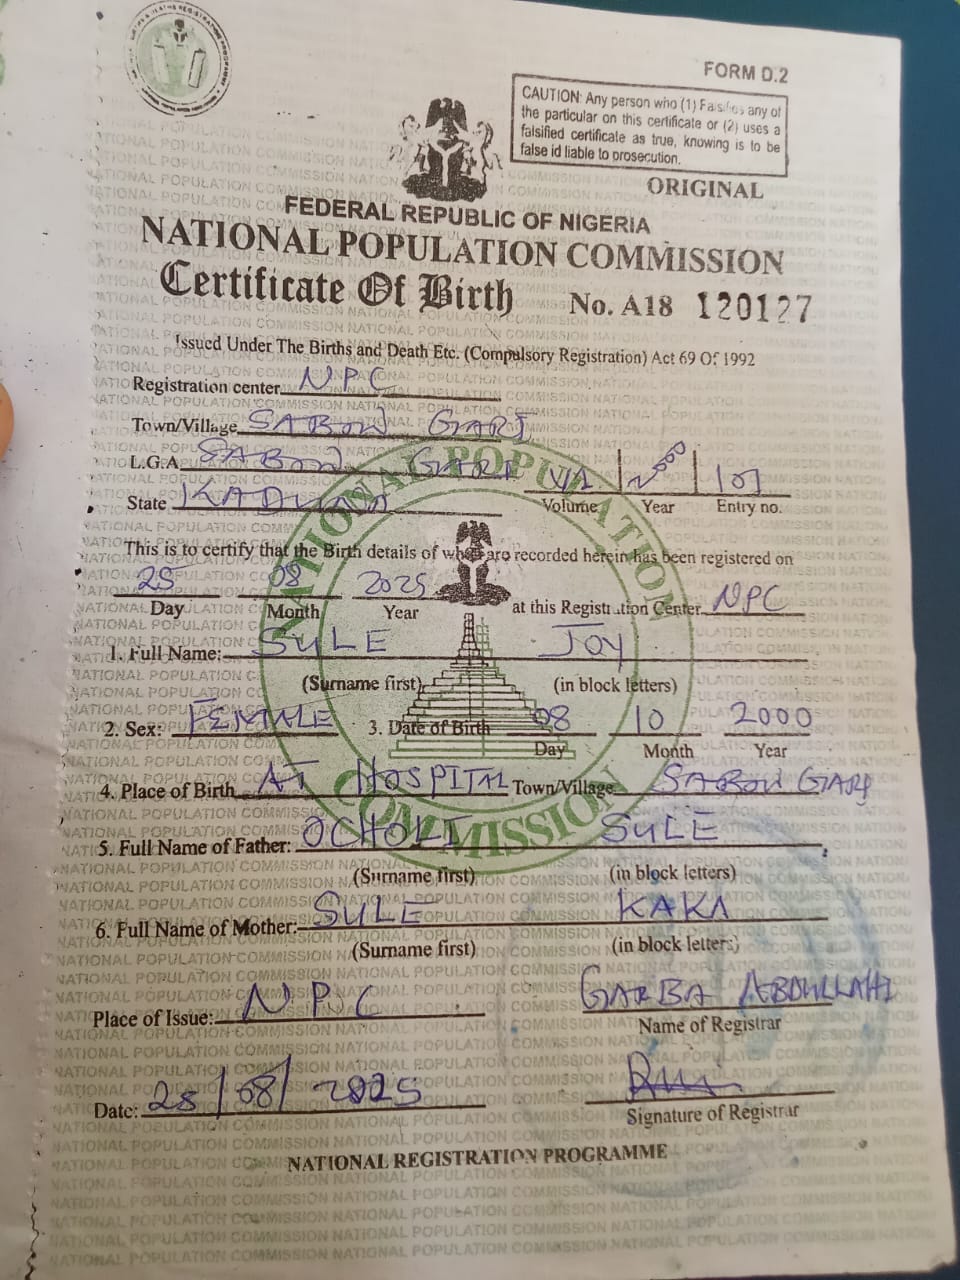 FORM D.2
CAUTION: Any person who (1) Falsifies any of
the particular on this certificate or (2) uses a
falsified certificate as true, knowing is to be
false id liable to prosecution.
ORIGINAL
FEDERAL REPUBLIC OF NIGERIA
NATIONAL POPULATION COMMISSION
Certificate Of Birth No. A18 120127
Issued Under The Births and Death Etc. (Compulsory Registration) Act 69 Of 1992
Registration center NPC
Town/Village SABON GARI
L.G.A SABON GARI
State KADUNA
VI 2000 107
Volume Year Entry no.
This is to certify that the Birth details of whom are recorded herein has been registered on
28 08 2025 at this Registration Center NPC
Day Month Year
1. Full Name: SULE JOY
(Surname first) (in block letters)
2. Sex: FEMALE 3. Date of Birth 08 10 2000
Day Month Year
4. Place of Birth AT HOSPITAL Town/Village SABON GARI
5. Full Name of Father: OCHOLI SULE
(Surname first) (in block letters)
6. Full Name of Mother: SULE KAKA
(Surname first) (in block letters)
Place of Issue: NPC GARBA ABDULLAHI
Name of Registrar
Date: 28/08/2025
Signature of Registrar
NATIONAL REGISTRATION PROGRAMME
NATIONAL POPULATION COMMISSION